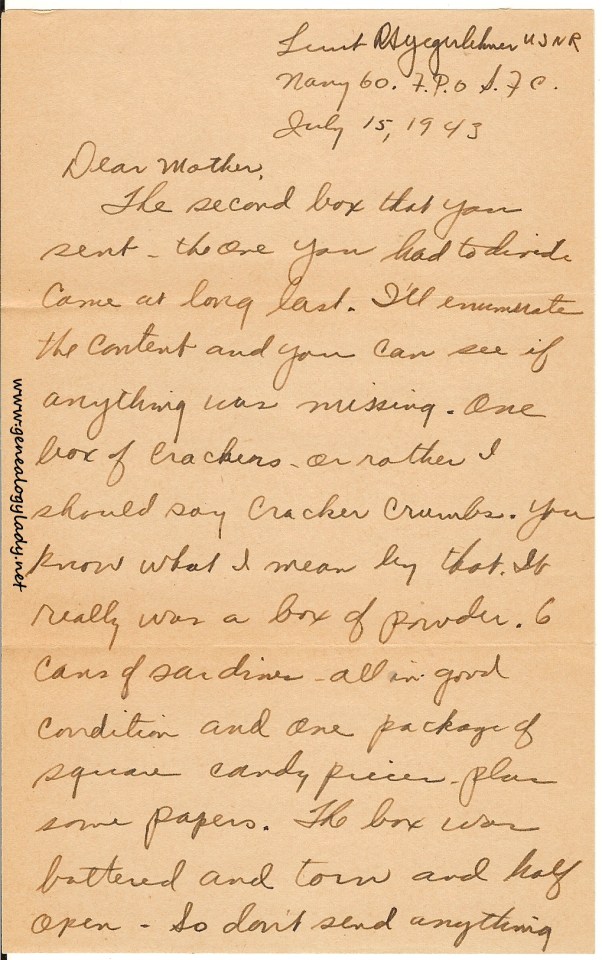 Lieut R S Yegerlehner USNR
Navy 60. F.P.O S.F C.
July 15, 1943
Dear Mother,
The second box that you
sent - the one you had to divide
came at long last. I'll enumerate
the content and you can see if
anything was missing. One
box of crackers - or rather I
should say cracker crumbs. You
know what I mean by that. It
really was a box of powder. 6
cans of sardines - all in good
condition and one package of
square candy pieces - plus
some papers. The box was
battered and torn and half
open - So don't send anything
www.genealogylady.net